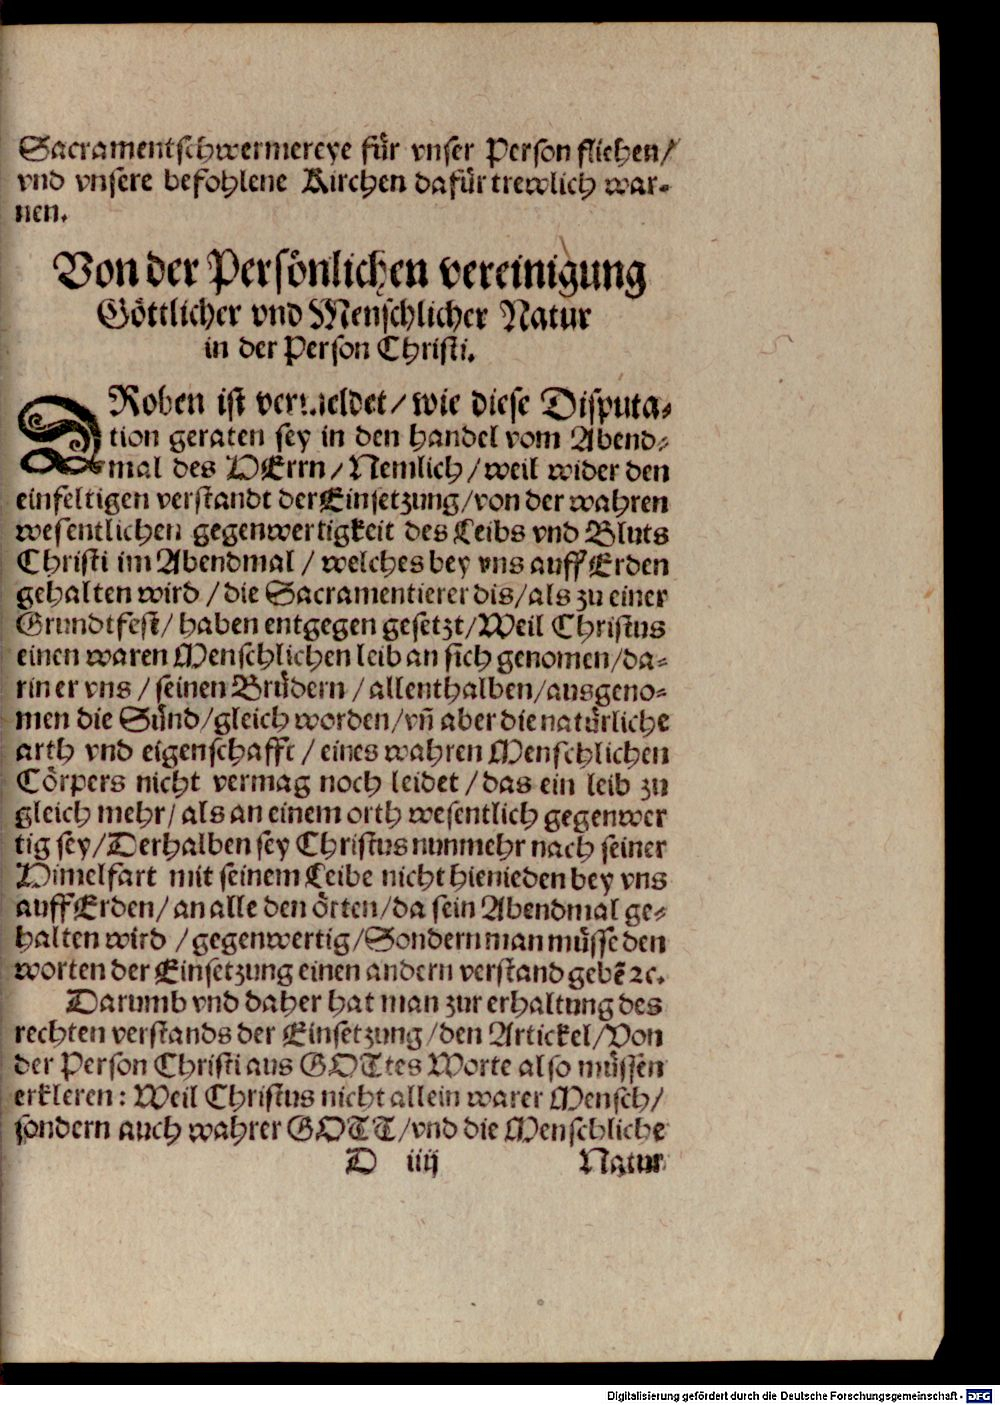 Sacramentschwermereye für vnser Person fliehen/
vnd vnsere befohlene Kirchen dafür trewlich war-
nen.
Von der Persönlichen vereinigung
Göttlicher vnd Menschlicher Natur
in der Person Christi.
DRoben ist vermeldet/ wie diese Disputa-
tion geraten sey in den handel vom Abend-
mal des HErrn/ Nemlich/ weil wider den
einfeltigen verstandt der Einsetzung/ von der wahren
wesentlichen gegenwertigkeit des Leibs vnd Bluts
Christi im Abendmal/ welches bey vns auff Erden
gehalten wird/ die Sacramentierer dis/ als zu einer
Grundtfest/ haben entgegen gesetzt/ Weil Christus
einen waren Menschlichen leib an sich genomen/ da-
rin er vns/ seinen Brüdern/ allenthalben/ ausgeno-
men die Sünd/ gleich worden/ vñ aber die natürliche
arth vnd eigenschafft/ eines wahren Menschlichen
Cörpers nicht vermag noch leidet/ das ein leib zu
gleich mehr/ als an einem orth wesentlich gegenwer
tig sey/ Derhalben sey Christus nunmehr nach seiner
Himelfart mit seinem Leibe nicht hienieden bey vns
auff Erden/ an alle den örten/ da sein Abendmal ge-
halten wird/ gegenwertig/ Sondern man müsse den
worten der Einsetzung einen andern verstand gebẽ ꝛc.
Darumb vnd daher hat man zur erhaltung des
rechten verstands der Einsetzung/ den Artickel/ Von
der Person Christi aus GOTtes Worte also müssen
erkleren: Weil Christus nicht allein warer Mensch/
sondern auch wahrer GOTT/ vnd die Menschliche
D iiij Natur
Digitalisierung gefördert durch die Deutsche Forschungsgemeinschaft - DFG